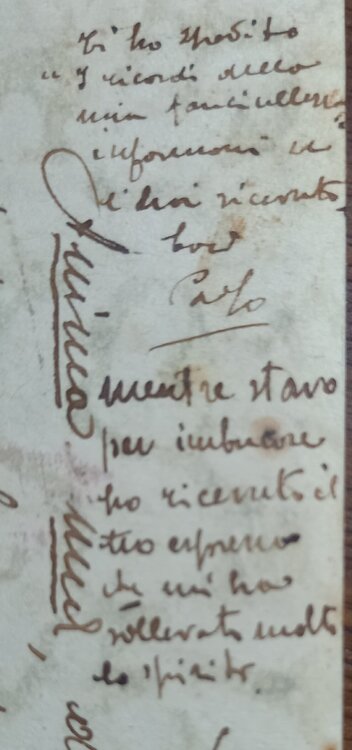 Ti ho spedito
"I ricordi della
mia fanciullezza"
informami se
li hai ricevuto
Carlo
mentre stavo
per imbucare
ho ricevuto il
tuo espresso
che mi ha
sollevato molto
lo spirito.
Anima mia,